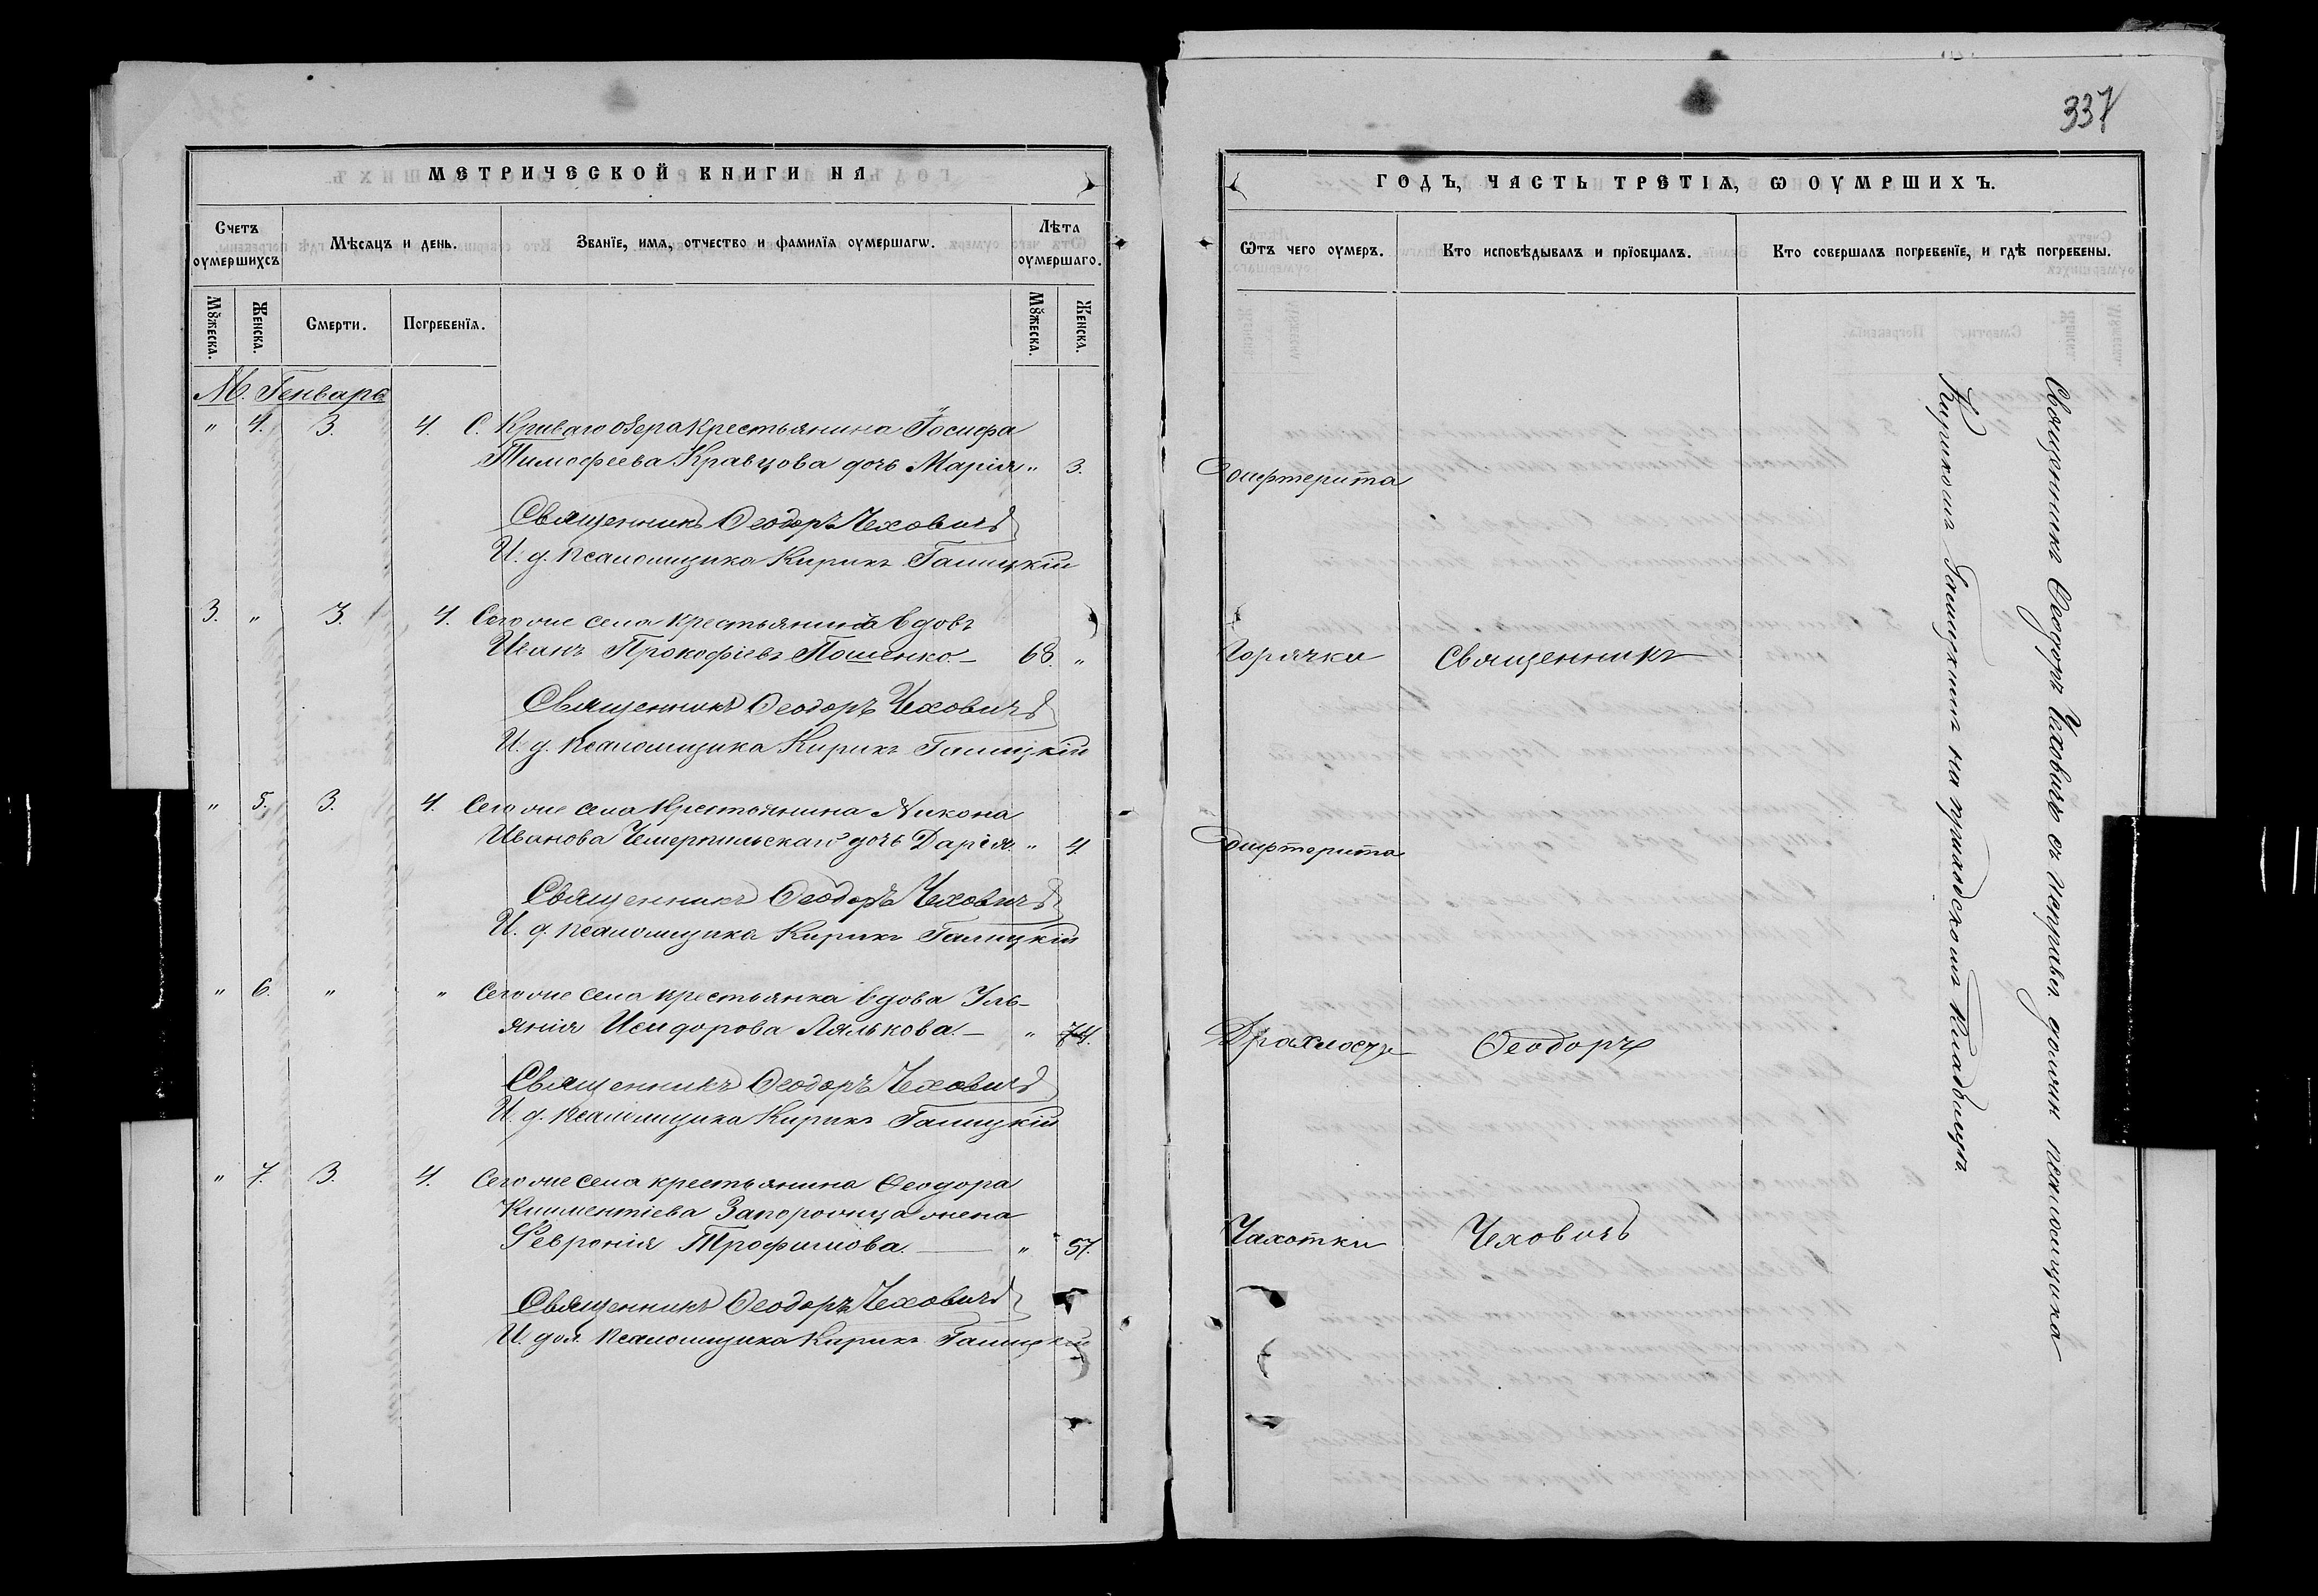 МЕТРИЧЕСКОЙ КНИГИ НА
Счетъ оумершихсъ
Мѣсяцъ и день.
Званїе, имя, отчество и фамилїя оумершагѡ.
Лѣта оумершаго.
Мꙋжеска.
Женска.
Смерти.
Погребенїя.
Мꙋжеска.
Женска.
М. Генварь
" 4. 3. 4. С. Криваго Озера крестьянина Іосифа
Тимофеева Кравцова дочь Марія " 3.
Священникъ Ѳеодоръ Чеховичъ
И. д. псаломщика Кирикъ Галицкій
3. " 3. 4. Сего же села крестьянинъ вдовъ
Иванъ Прокофіевъ Пошенко. — 68. "
Священникъ Ѳеодоръ Чеховичъ
И. д. псаломщика Кирикъ Галицкій
" 5. 3. 4. Сего же села крестьянина Никона
Иванова Чемерпильскаго дочь Дарія. " 4.
Священникъ Ѳеодоръ Чеховичъ
И. д. псаломщика Кирикъ Галицкій
" 6. " " Сего же села крестьянка вдова Уль-
янія Исидорова Лялькова. — " 74.
Священникъ Ѳеодоръ Чеховичъ
И. д. псаломщика Кирикъ Галицкій
" 7. 3. 4. Сего же села крестьянина Ѳеодора
Климентіева Запорожца жена
Февронія Трофимова. — " 57.
Священникъ Ѳеодоръ Чеховичъ
И. дол. псаломщика Кирикъ Галицкій
337
ГОДЪ, ЧАСТЬ ТРЕТІѦ, Ѡ ОУМРШИХЪ.
Ѿтъ чего оумеръ.
Кто исповѣдывалъ и прїобщалъ.
Кто совершалъ погребенїе, и гдѣ погребены.
дифтерита
Горячки Священникъ
дифтерита
Дряхлости Ѳеодоръ
Чахотки Чеховичъ
Священникъ Ѳеодоръ Чеховичъ съ исправл. должн. псаломщика
Кирикомъ Галицкимъ на приходскомъ кладбищѣ